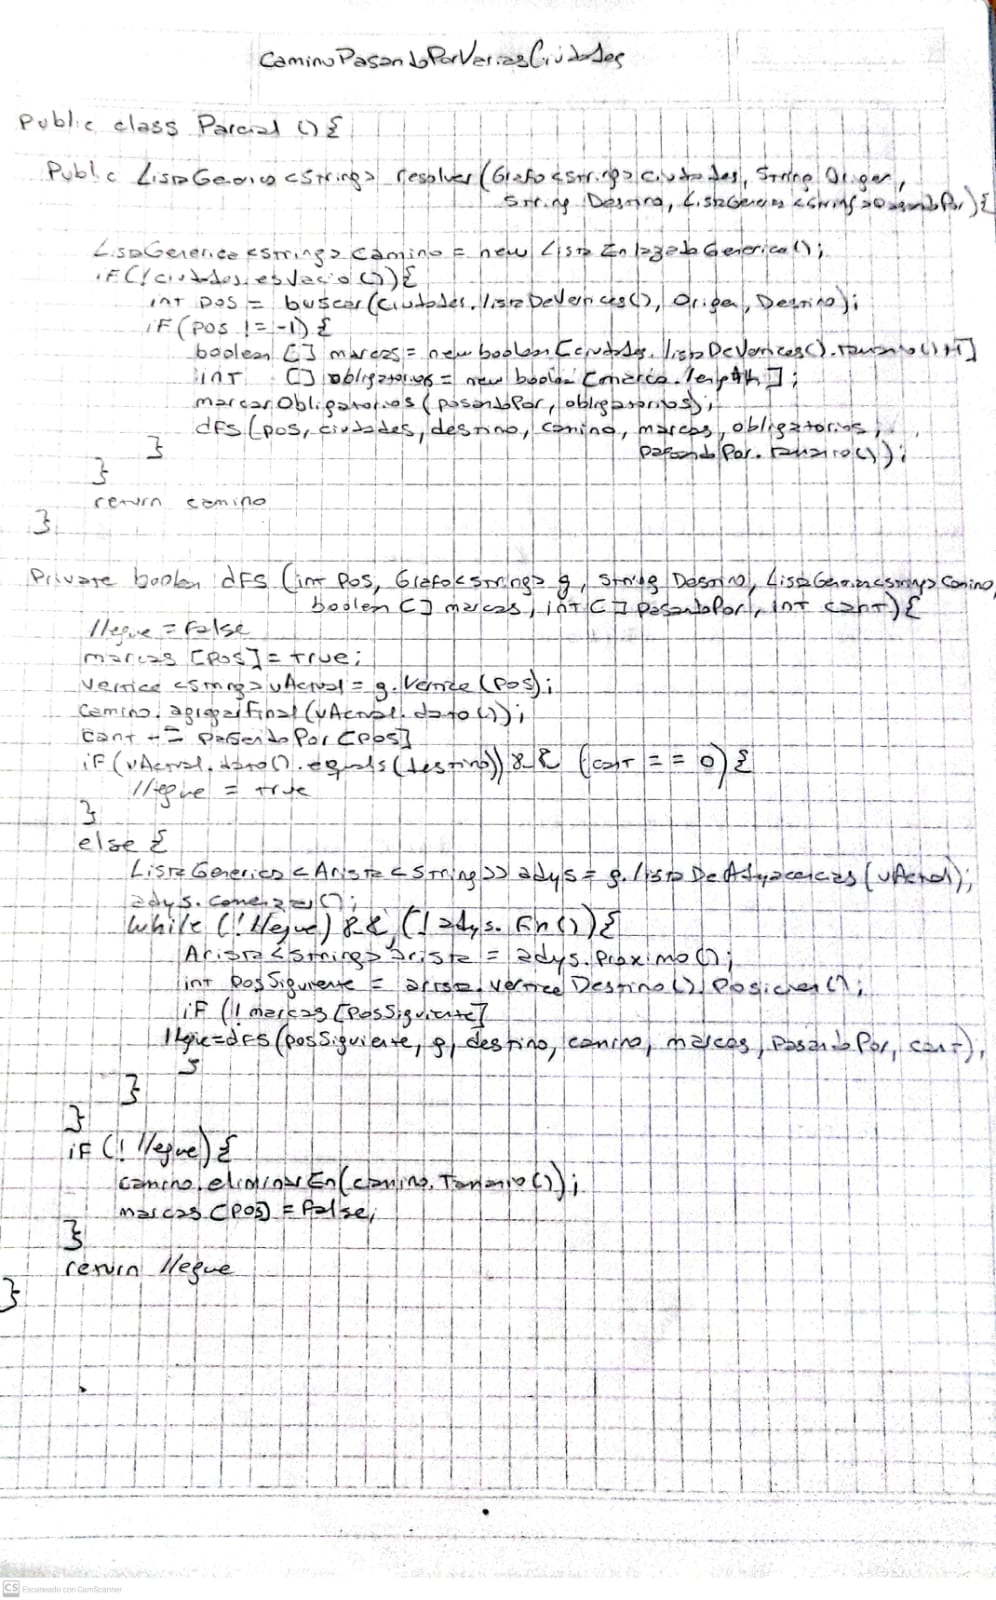 caminoPasandoPorVariasCiudades
Public class Parcial () {
Public ListaGenerica <String> resolver (Grafo <string> ciudades, String Origen,
String Destino, ListaGenerica <string> pasandoPor) {
ListaGenerica <string> camino = new ListaEnlazadaGenerica();
if (! ciudades.esVacio ()) {
int pos = buscar (ciudades.listaDeVertices(), Origen, Destino);
if (pos != -1) {
boolean [] marcas = new boolean [ciudades.listaDeVertices().tamanio()+1]
int [] obligatorios = new boolean [marca.length];
marcarObligatorios (pasandoPor, obligatorios);
dfs (pos, ciudades, destino, camino, marcas, obligatorios,
pasandoPor.tamanio());
}
}
return camino
}
Private boolean dfs (int pos, Grafo<string> g, string Destino, ListaGenerica<string> camino,
boolean [] marcas, int [] pasandoPor, int cant) {
llegue = false
marcas [pos] = true;
vertice <string> vActual = g.vertice (pos);
camino.agregarFinal (vActual.dato ());
cant -= pasandoPor [pos]
if (vActual.dato().equals (destino)) && (cant == 0) {
llegue = true
}
else {
ListaGenerica <Arista <String>> adys = g.listaDeAdyacencias (vActual);
adys.comenzar();
while (! llegue) && (! adys.fin()) {
Arista <string> arista = adys.proximo();
int posSiguiente = arista.verticeDestino().posicion();
if (! marcas [posSiguiente]
llegue=dfs (posSiguiente, g, destino, camino, marcas, pasandoPor, cant),
}
}
}
if (! llegue) {
camino.eliminarEn (camino.Tamanio());
marcas [pos] = false;
}
return llegue
}
CS Escaneado con CamScanner